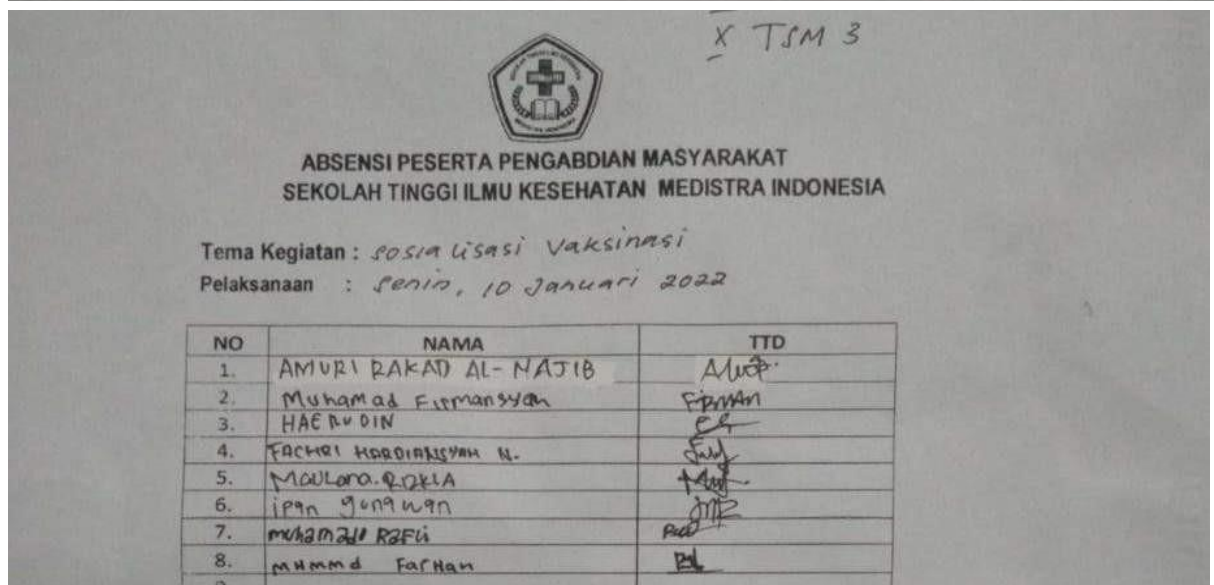 X TSM 3
ABSENSI PESERTA PENGABDIAN MASYARAKAT
SEKOLAH TINGGI ILMU KESEHATAN MEDISTRA INDONESIA
Tema Kegiatan : sosialisasi Vaksinasi
Pelaksanaan : Senin, 10 Januari 2022
NO NAMA TTD
1. AMURI RAKAD AL-NAJIB
2. Muhamad Firmansyah FIRMAN
3. HAERUDIN
4. FACHRI HARDIANSYAH N.
5. MAULANA.RIZKIA
6. ipan gunawan
7. muhamad RaFLi
8. MUHMMd FarHan